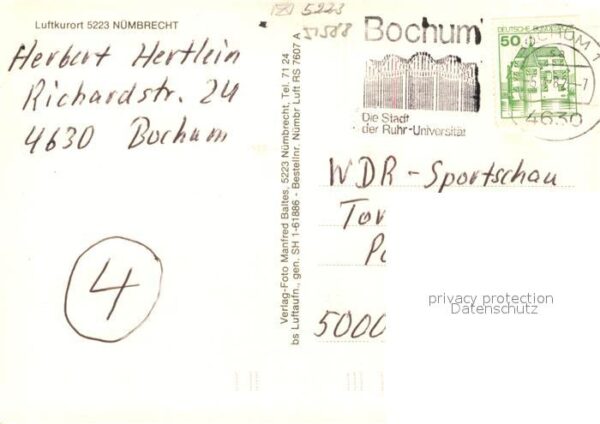 Luftkurort 5223 NÜMBRECHT
Herbert Hertlein
Richardstr. 24
4630 Bochum
4
5223
Verlag-Foto Manfred Baltes, 5223 Nümbrecht, Tel. 71 24
bs Luftaufn., gen. SH 1-61886 - Bestellnr. Nümbr Luft RS 7607 A
Bochum
Die Stadt
der Ruhr-Universität
DEUTSCHE BUNDESPOST
50
BOCHUM 1
4630
WDR - Sportschau
Tor
5000
privacy protection
Datenschutz